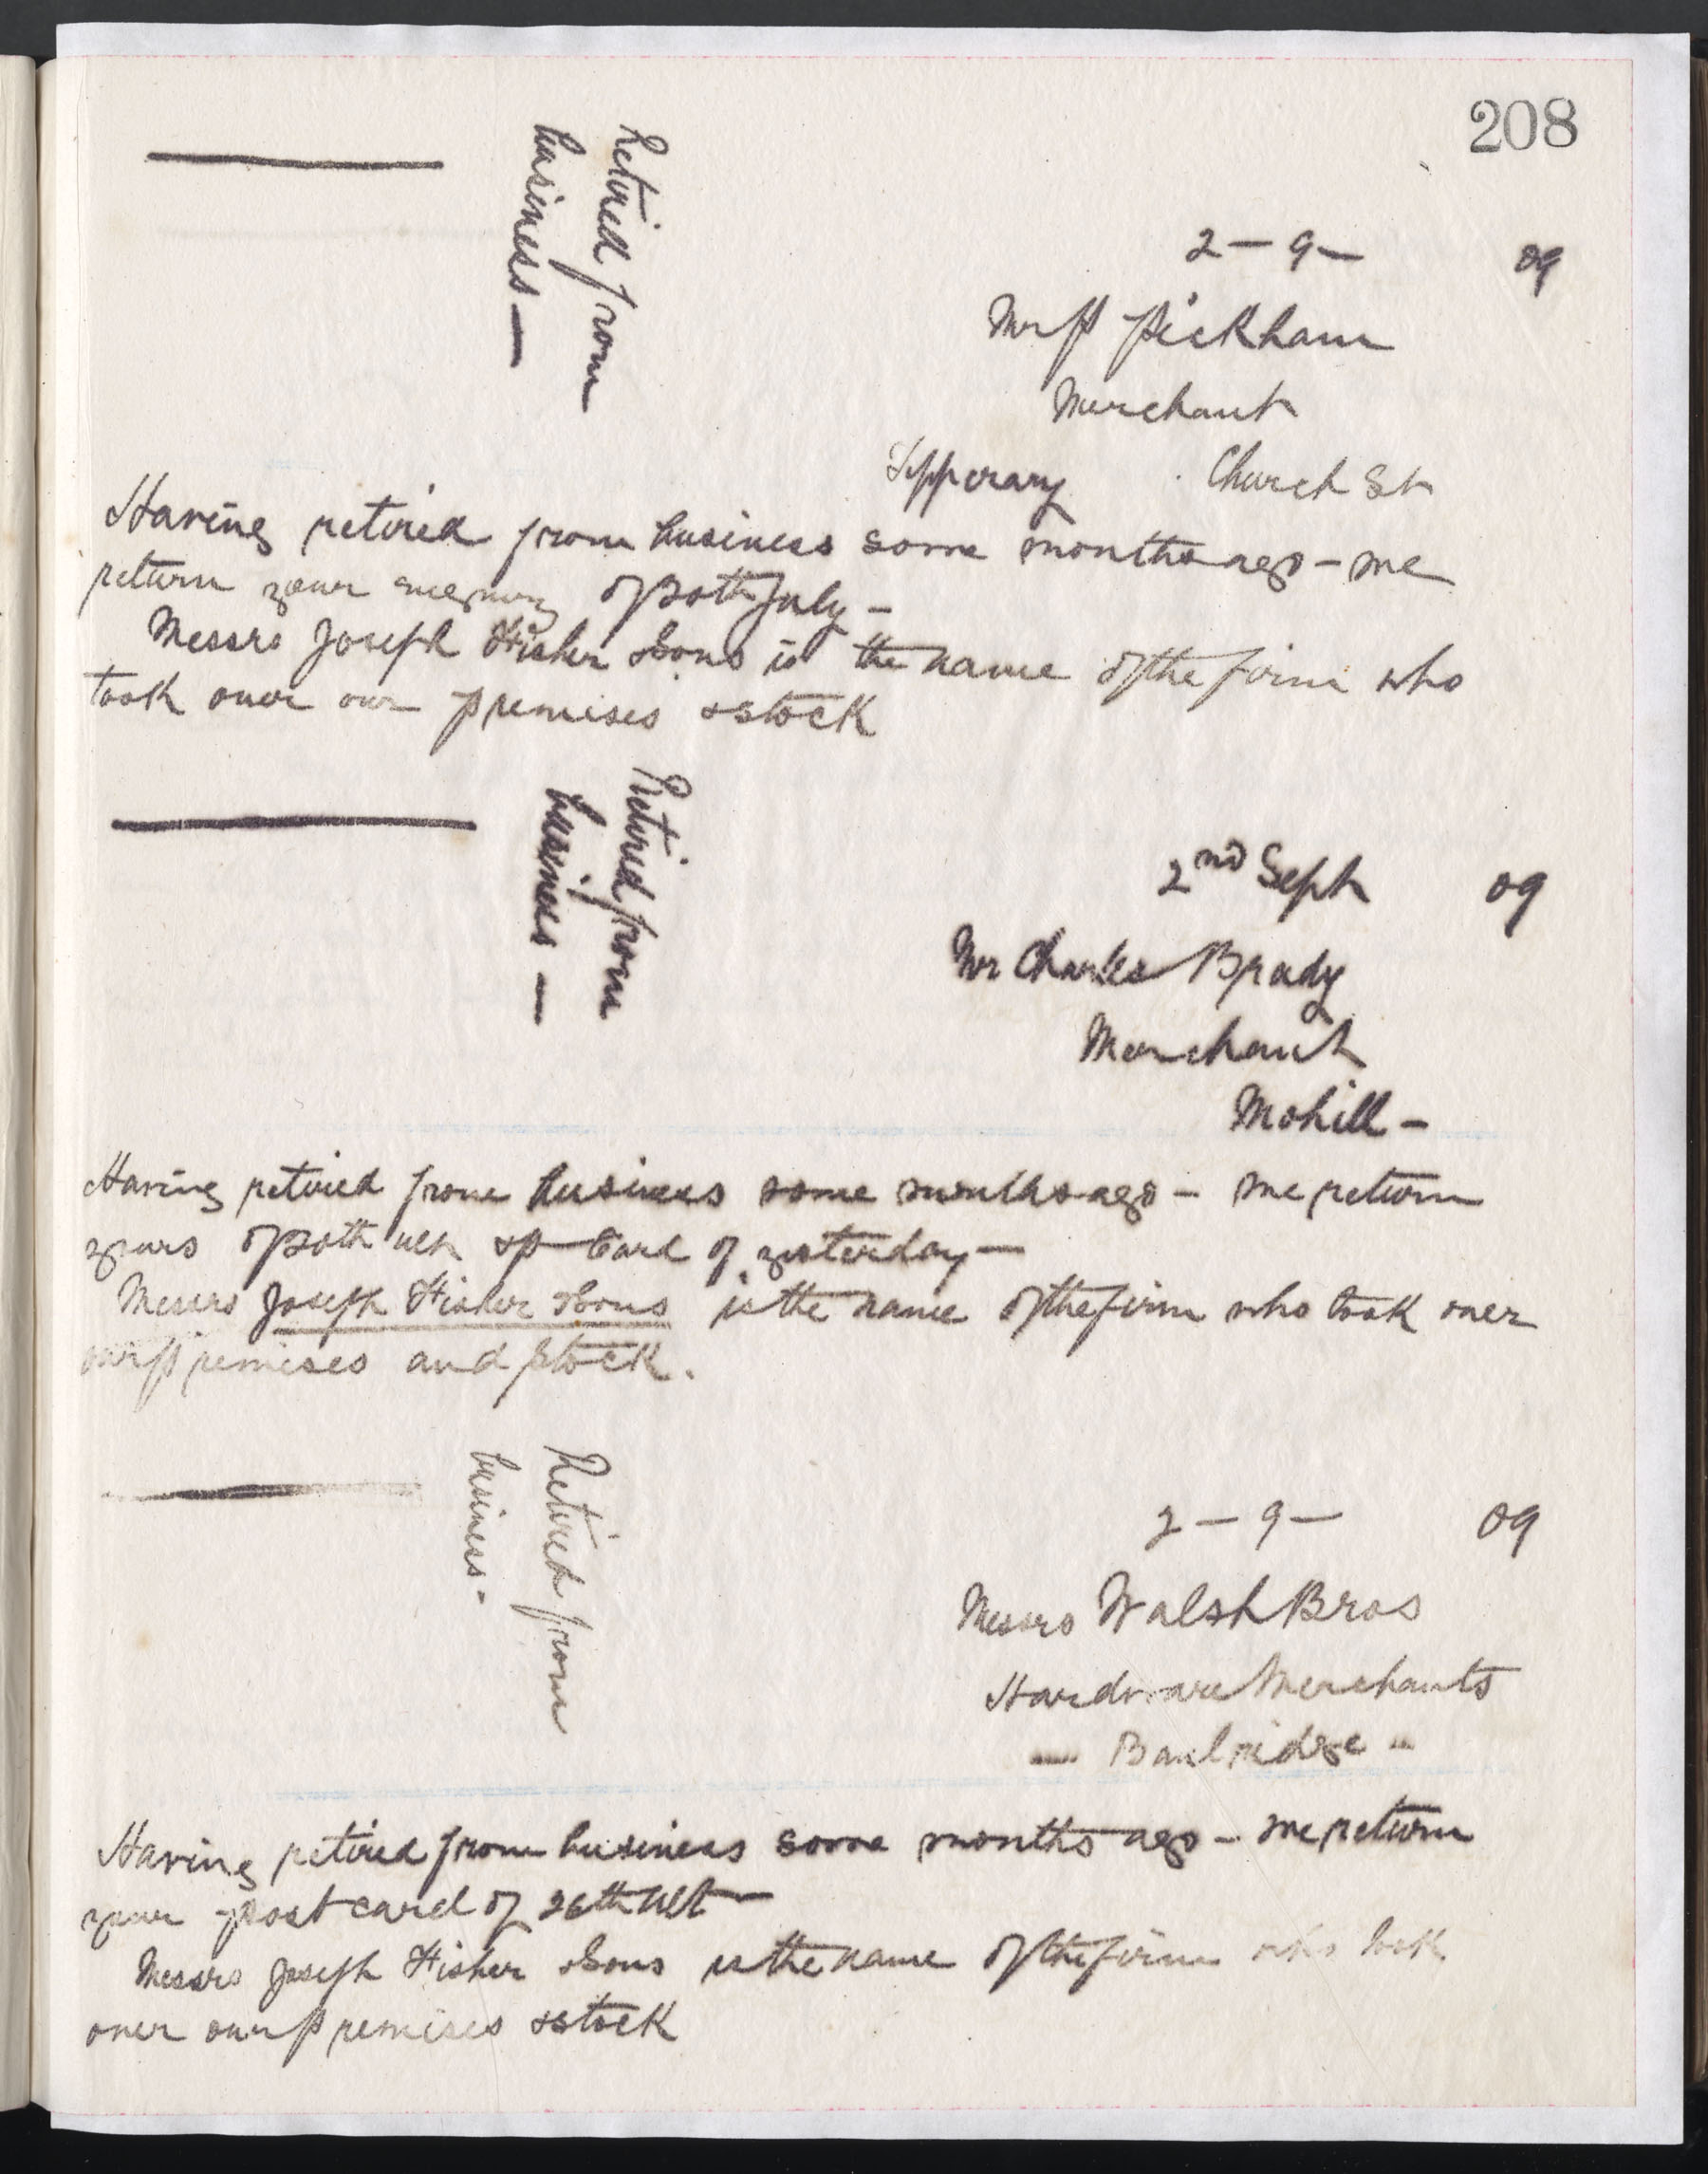 208
Retired from
business —
2 – 9 – 09
Mr P Pickham
Merchant
Tipperary Church St
Having retired from business some months ago – we
return your enquiry of 30th July –
Messrs Joseph Fisher & Sons is the name of the firm who
took over our premises & stock
Retired from
business —
2nd Sept 09
Mr Charles Brady
Merchant
Mohill –
Having retired from business some months ago – we return
yours of 30th ult & P Card of yesterday —
Messrs Joseph Fisher & Sons is the name of the firm who took over
our premises and stock.
Retired from
business -
2 – 9 – 09
Messrs Walsh Bros
Hardware Merchants
— Banbridge —
Having retired from business some months ago – we return
your post card of 26th Ult —
Messrs Joseph Fisher & Sons is the name of the firm who took
over our premises & stock